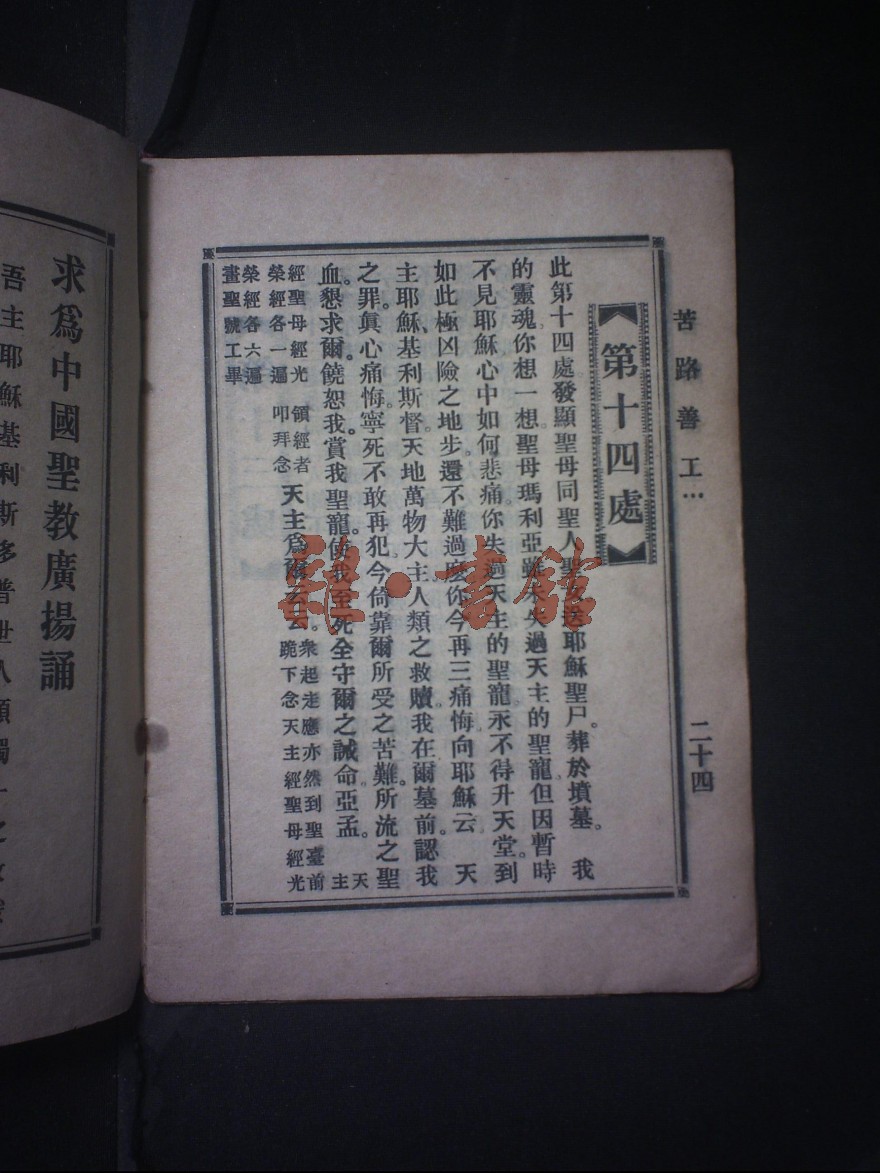 苦路善工…
二十四
【第十四處】
此第十四處發顯聖母同聖人聖女送耶穌聖尸。葬於墳墓。 我
的靈魂你想一想聖母瑪利亞雖未失過天主的聖寵但因暫時
不見耶穌心中如何悲痛。你失過天主的聖寵。永不得升天堂。到
如此極凶險之地步。還不難過麼你今再三痛悔向耶穌云 天
主耶穌、基利斯督。天地萬物大主人類之救贖。我在爾墓前。認我
之罪。眞心痛悔。寧死不敢再犯。今倚靠爾所受之苦難。所流之聖
血。懇求爾饒恕我。賞我聖寵。使我至死全守爾之誡命亞孟。 天主
經聖母經光榮經各一遍 領經者叩拜念 天主爲爾云云。 衆起走應亦然到聖臺前跪下念天主經聖母經光
榮經各六遍畫聖號工畢
求爲中國聖教廣揚誦
吾主耶穌基利斯多普世人類獨一之救